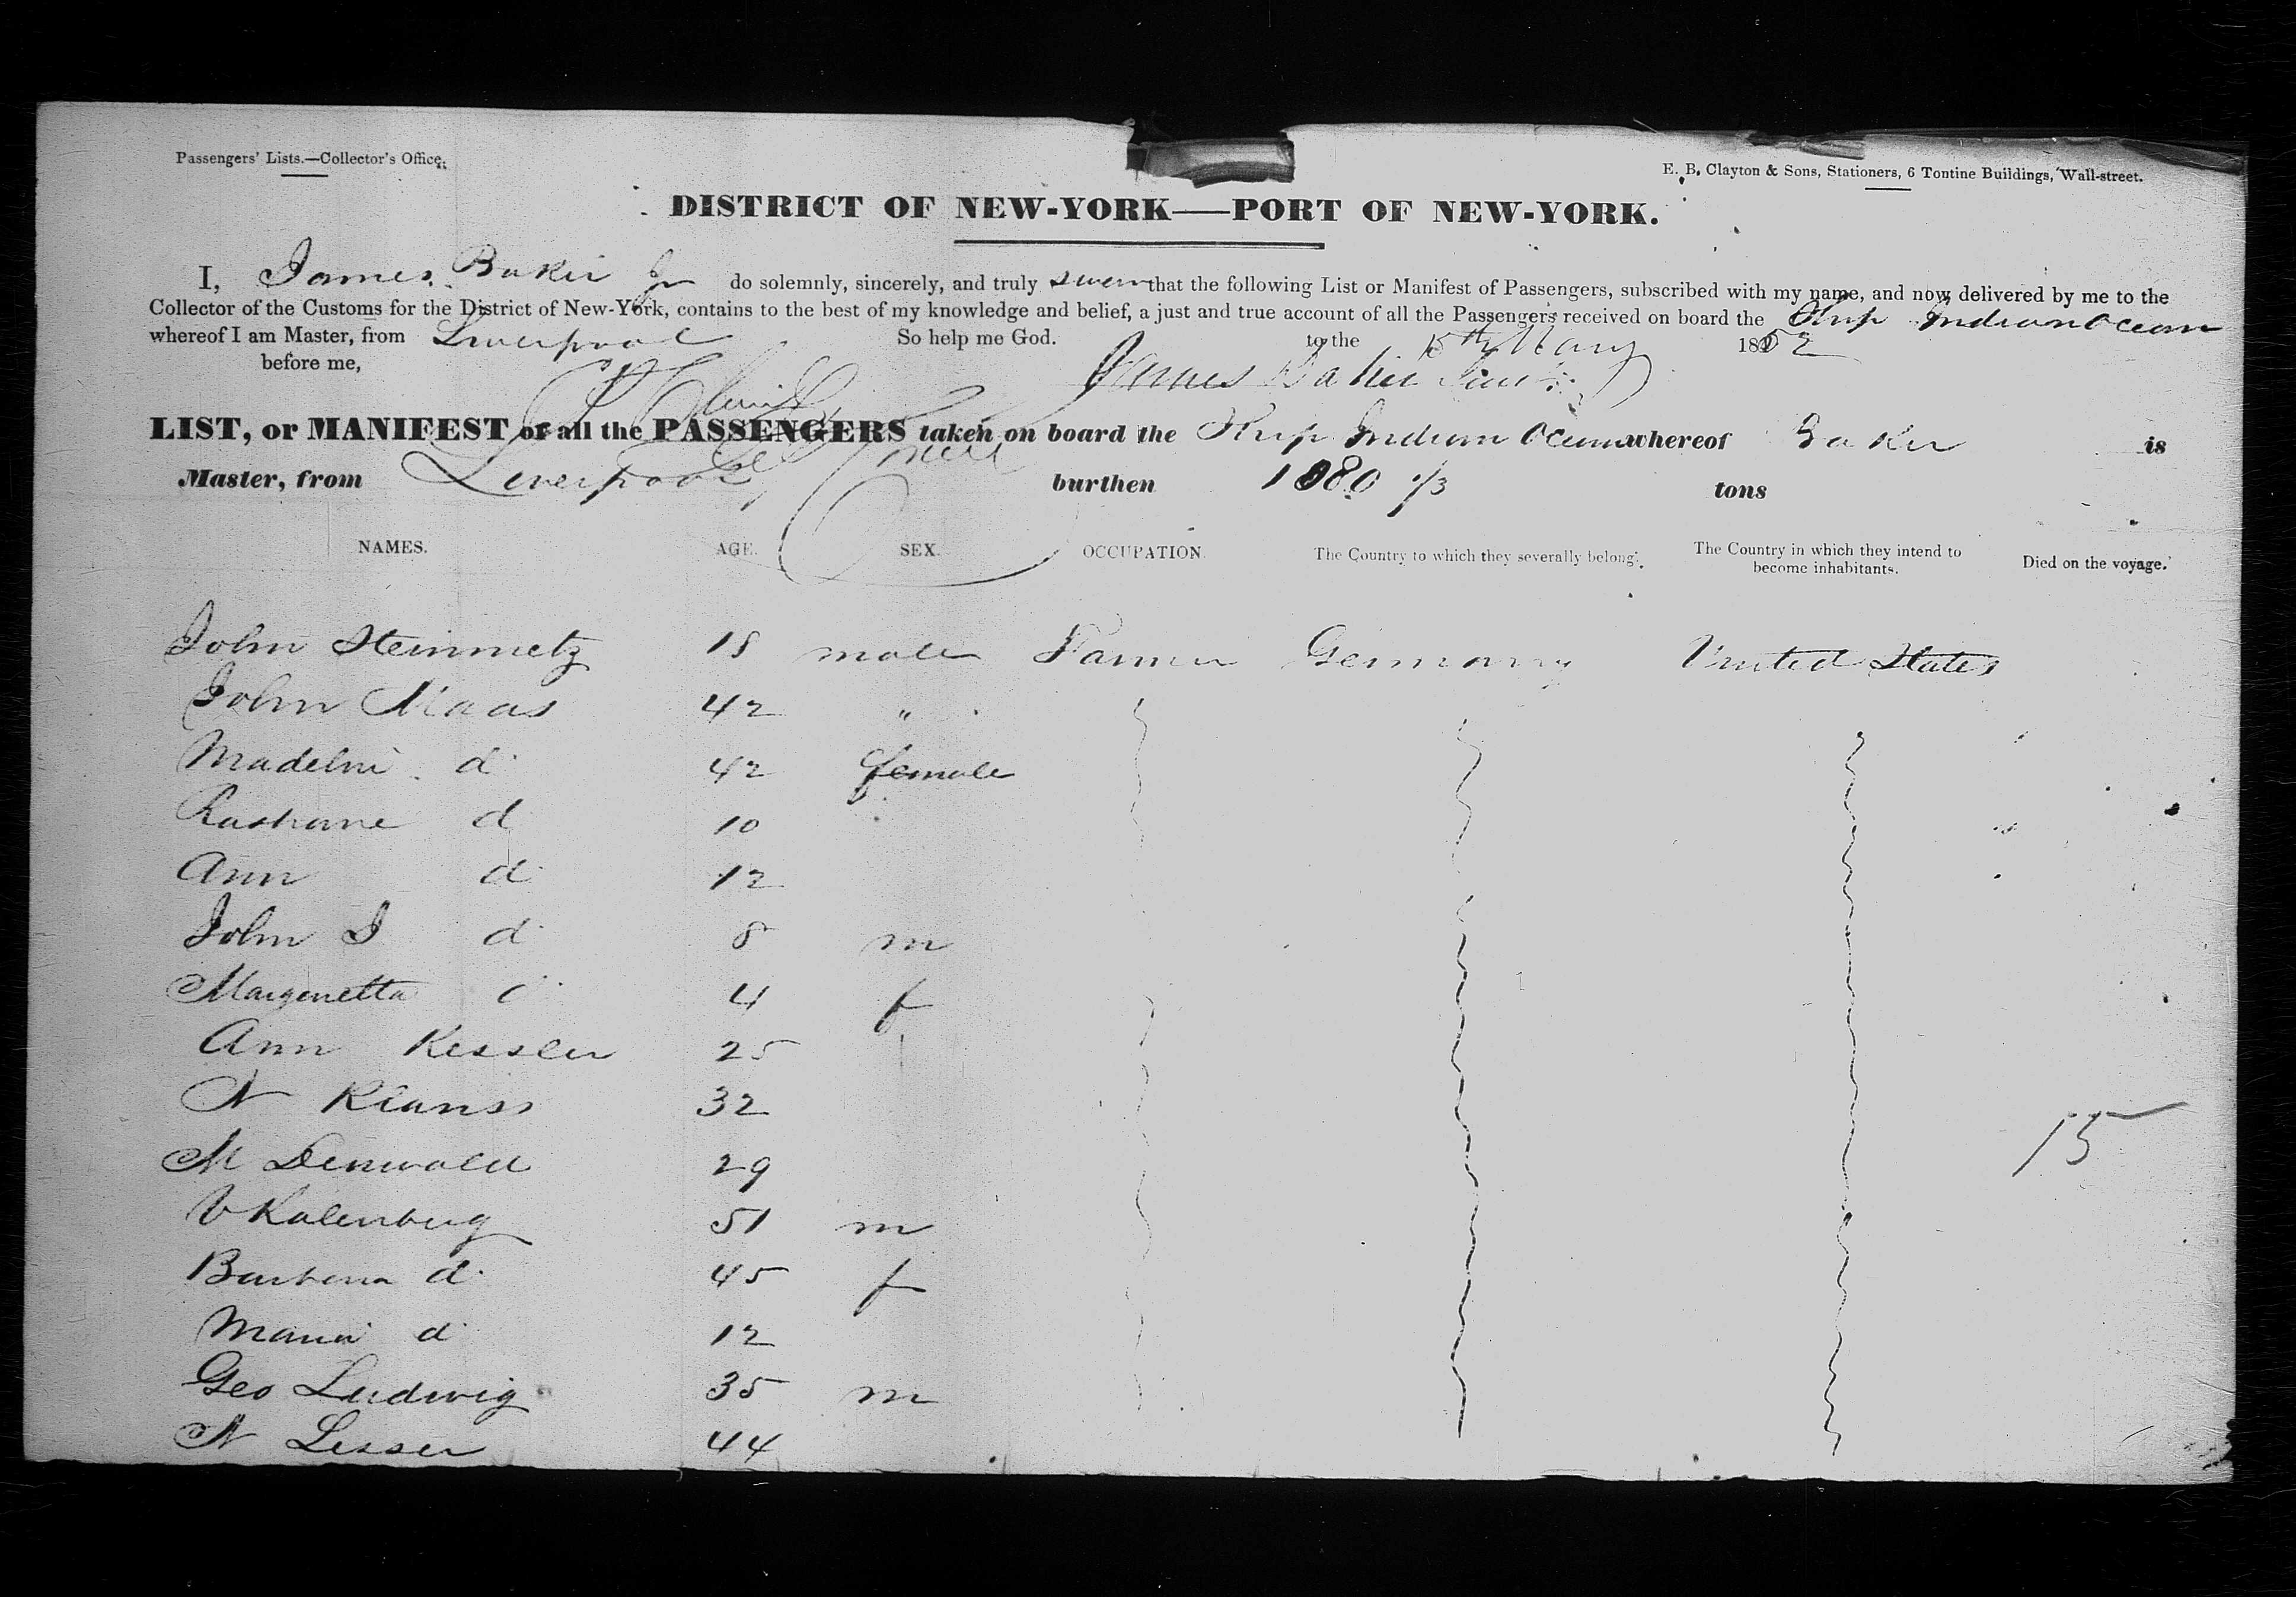 Passengers' Lists.—Collector's Office.
E. B. Clayton & Sons, Stationers, 6 Tontine Buildings, Wall-street.
DISTRICT OF NEW-YORK—PORT OF NEW-YORK.
I, James Baker Jr do solemnly, sincerely, and truly swear that the following List or Manifest of Passengers, subscribed with my name, and now delivered by me to the
Collector of the Customs for the District of New-York, contains to the best of my knowledge and belief, a just and true account of all the Passengers received on board the Ship Indian Ocean
whereof I am Master, from Liverpool So help me God. to the 15th May 1852
before me, James Baker
LIST, or MANIFEST of all the PASSENGERS taken on board the Ship Indian Ocean whereof Baker is
Master, from Liverpool burthen 1080 1/3 tons
NAMES. AGE. SEX. OCCUPATION. The Country to which they severally belong. The Country in which they intend to become inhabitants. Died on the voyage.
John Steinmetz 18 male Farmer Germany United States
John Maas 42 "
Madeline d 42 female
d 10
Ann d 12
John J d 8 m
Margenetta d 4 f
Ann Kessler 25
N Klanss 32
M Denwald 29
V Kalenberg 51 m
Barbera d 45 f
Maria d 12
Geo Ludwig 35 m
N Lesser 44
15